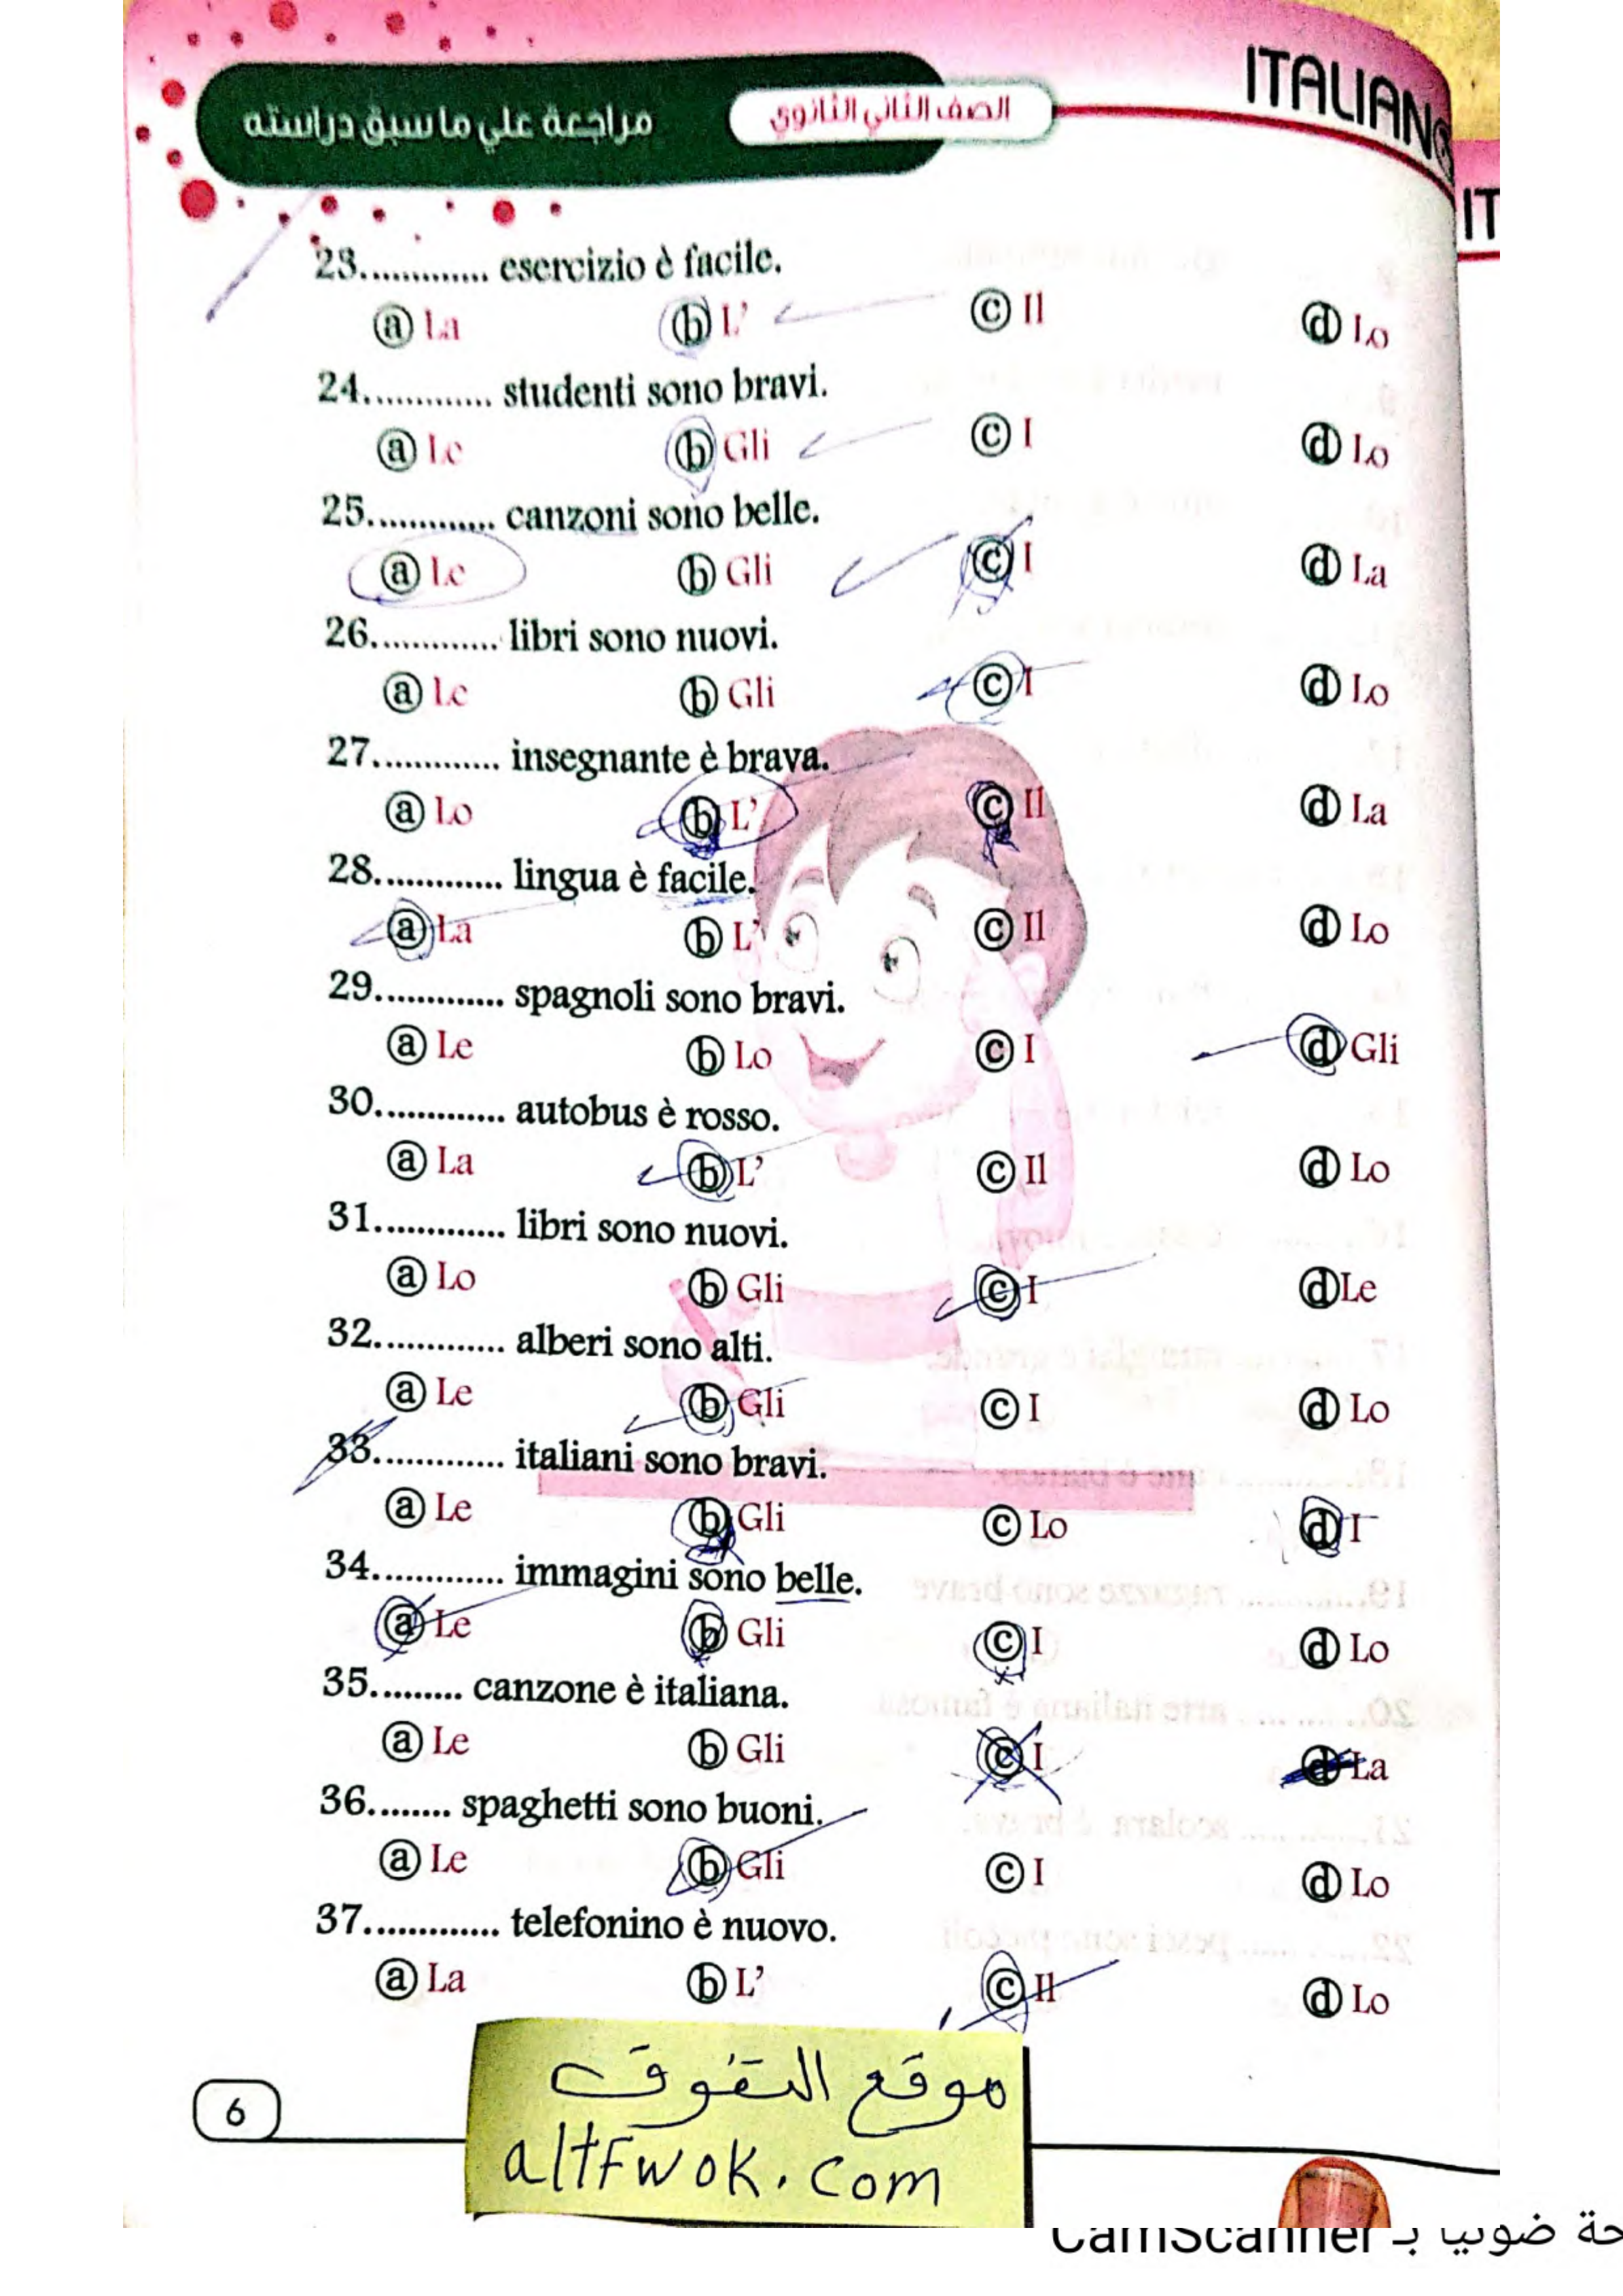 ITALIANO
مراجعة علي ما سبق دراسته
الصف الثاني الثانوي
IT
23............. esercizio è facile.
ⓐ La ⓑ L’ ⓒ Il ⓓ Lo
24............. studenti sono bravi.
ⓐ Le ⓑ Gli ⓒ I ⓓ Lo
25............. canzoni sono belle.
ⓐ Le ⓑ Gli ⓒ I ⓓ La
26............. libri sono nuovi.
ⓐ Le ⓑ Gli ⓒ I ⓓ Lo
27............. insegnante è brava.
ⓐ Lo ⓑ L’ ⓒ Il ⓓ La
28............. lingua è facile.
ⓐ La ⓑ L’ ⓒ Il ⓓ Lo
29............. spagnoli sono bravi.
ⓐ Le ⓑ Lo ⓒ I ⓓ Gli
30............. autobus è rosso.
ⓐ La ⓑ L’ ⓒ Il ⓓ Lo
31............. libri sono nuovi.
ⓐ Lo ⓑ Gli ⓒ I ⓓ Le
32............. alberi sono alti.
ⓐ Le ⓑ Gli ⓒ I ⓓ Lo
33............. italiani sono bravi.
ⓐ Le ⓑ Gli ⓒ Lo ⓓ I
34............. immagini sono belle.
ⓐ Le ⓑ Gli ⓒ I ⓓ Lo
35......... canzone è italiana.
ⓐ Le ⓑ Gli ⓒ I ⓓ La
36........ spaghetti sono buoni.
ⓐ Le ⓑ Gli ⓒ I ⓓ Lo
37............. telefonino è nuovo.
ⓐ La ⓑ L’ ⓒ Il ⓓ Lo
موقع التفوق
altFwok.com
6
ضوئيا بـ CamScanner